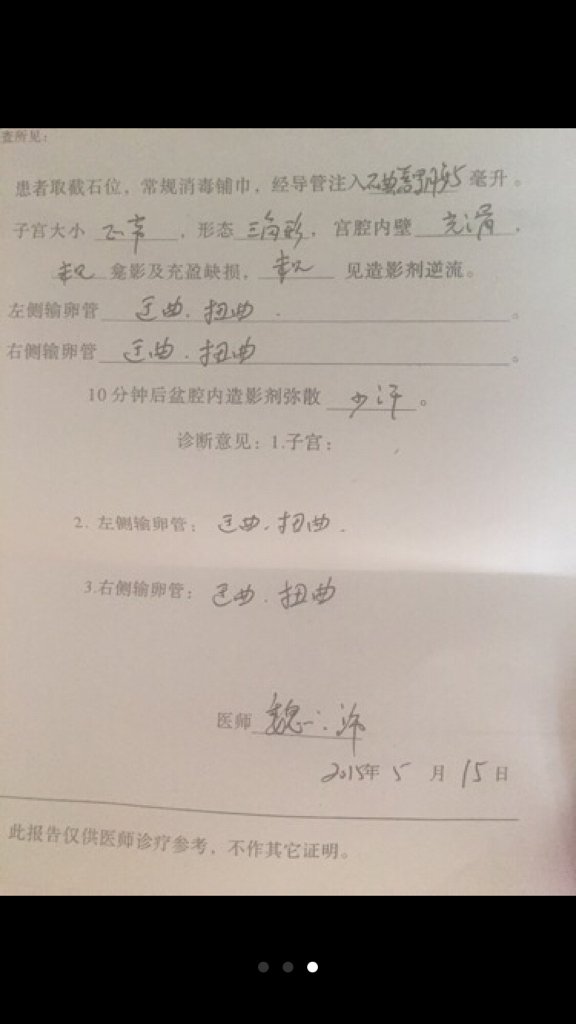 查所见:
患者取截石位，常规消毒铺巾，经导管注入 毫升。
子宫大小 正常，形态 三角形，宫腔内壁 光滑，
未见 龛影及充盈缺损，未见 见造影剂逆流。
左侧输卵管 迂曲.扭曲.。
右侧输卵管 迂曲.扭曲。
10分钟后盆腔内造影剂弥散 。
诊断意见：1.子宫：
2. 左侧输卵管：迂曲.扭曲.
3.右侧输卵管：迂曲.扭曲
医师
2015年 5 月 15 日
此报告仅供医师诊疗参考，不作其它证明。